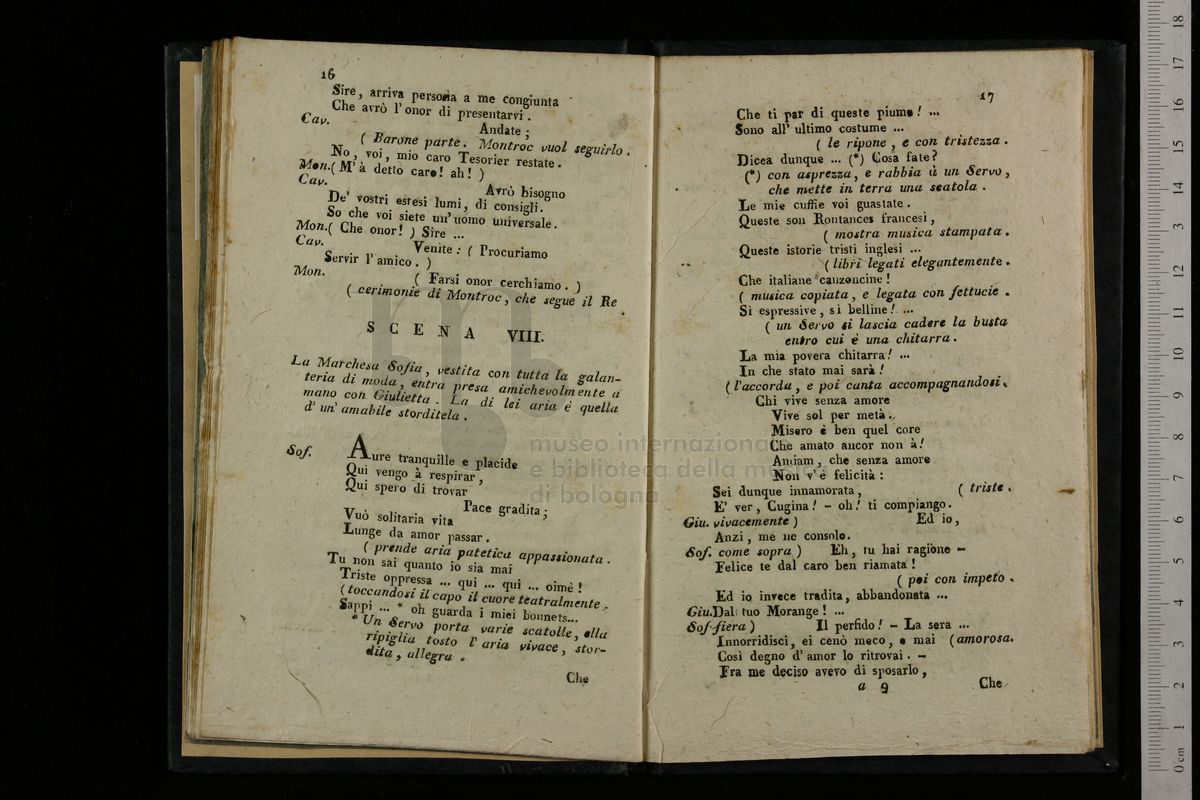 16
Sire, arriva persona a me congiunta
Che avrò l'onor di presentarvi.
Cav. Andate;
( Barone parte. Montroc vuol seguirlo.
No, voi, mio caro Tesorier restate.
Mon.( M' à detto caro! ah! )
Cav. Avrò bisogno
De' vostri estesi lumi, di consigli.
So che voi siete un' uomo universale.
Mon.( Che onor! ) Sire ...
Cav. Venite: ( Procuriamo
Servir l'amico. )
Mon. ( Farsi onor cerchiamo. )
( cerimonie di Montroc, che segue il Re
SCENA VIII.
La Marchesa Sofia, vestita con tutta la galan-
teria di moda, entra presa amichevolmente a
mano con Giulietta. La di lei aria è quella
d' un' amabile storditela.
Sof. Aure tranquille e placide
Qui vengo à respirar,
Qui spero di trovar
Pace gradita;
Vuò solitaria vita
Lunge da amor passar.
( prende aria patetica appassionata.
Tu non sai quanto io sia mai
Triste oppressa ... qui ... qui ... oimè!
( toccandosi il capo il cuore teatralmente.
Sappi ... * oh guarda i miei bonnets...
* Un Servo porta varie scatolle, ella
ripiglia tosto l' aria vivace, stor-
dita, allegra.
Che
17
Che ti par di queste piume! ...
Sono all' ultimo costume ...
( le ripone, e con tristezza.
Dicea dunque ... (*) Cosa fate?
(*) con asprezza, e rabbia ù un Servo,
che mette in terra una scatola.
Le mie cuffie voi guastate.
Queste son Rontances francesi,
( mostra musica stampata.
Queste istorie tristi inglesi ...
( libri legati elegantemente.
Che italiane canzoncine!
( musica copiata, e legata con fettucie.
Sì espressive, sì belline! ...
( un Servo si lascia cadere la busta
entro cui è una chitarra.
La mia povera chitarra! ...
In che stato mai sarà!
( l'accorda, e poi canta accompagnandosi.
Chi vive senza amore
Vive sol per metà.
Misero è ben quel core
Che amato ancor non à!
Amiam, che senza amore
Non v'è felicità:
Sei dunque innamorata, ( triste.
E' ver, Cugina! - oh! ti compiango.
Giu. vivacemente ) Ed io,
Anzi, me ne consolo.
Sof. come sopra ) Eh, tu hai ragione -
Felice te dal caro ben riamata!
( poi con impeto.
Ed io invece tradita, abbandonata ...
Giu.Dal tuo Morange! ...
Sof-fiera ) Il perfido! - La sera ...
Innorridisci, ei cenò meco, e mai ( amorosa.
Così degno d' amor lo ritrovai. -
Fra me deciso avevo di sposarlo,
a 9
Che
museo internazionale
e biblioteca della musica
di bologna
0 cm 1 2 3 4 5 6 7 8 9 10 11 12 13 14 15 16 17 18